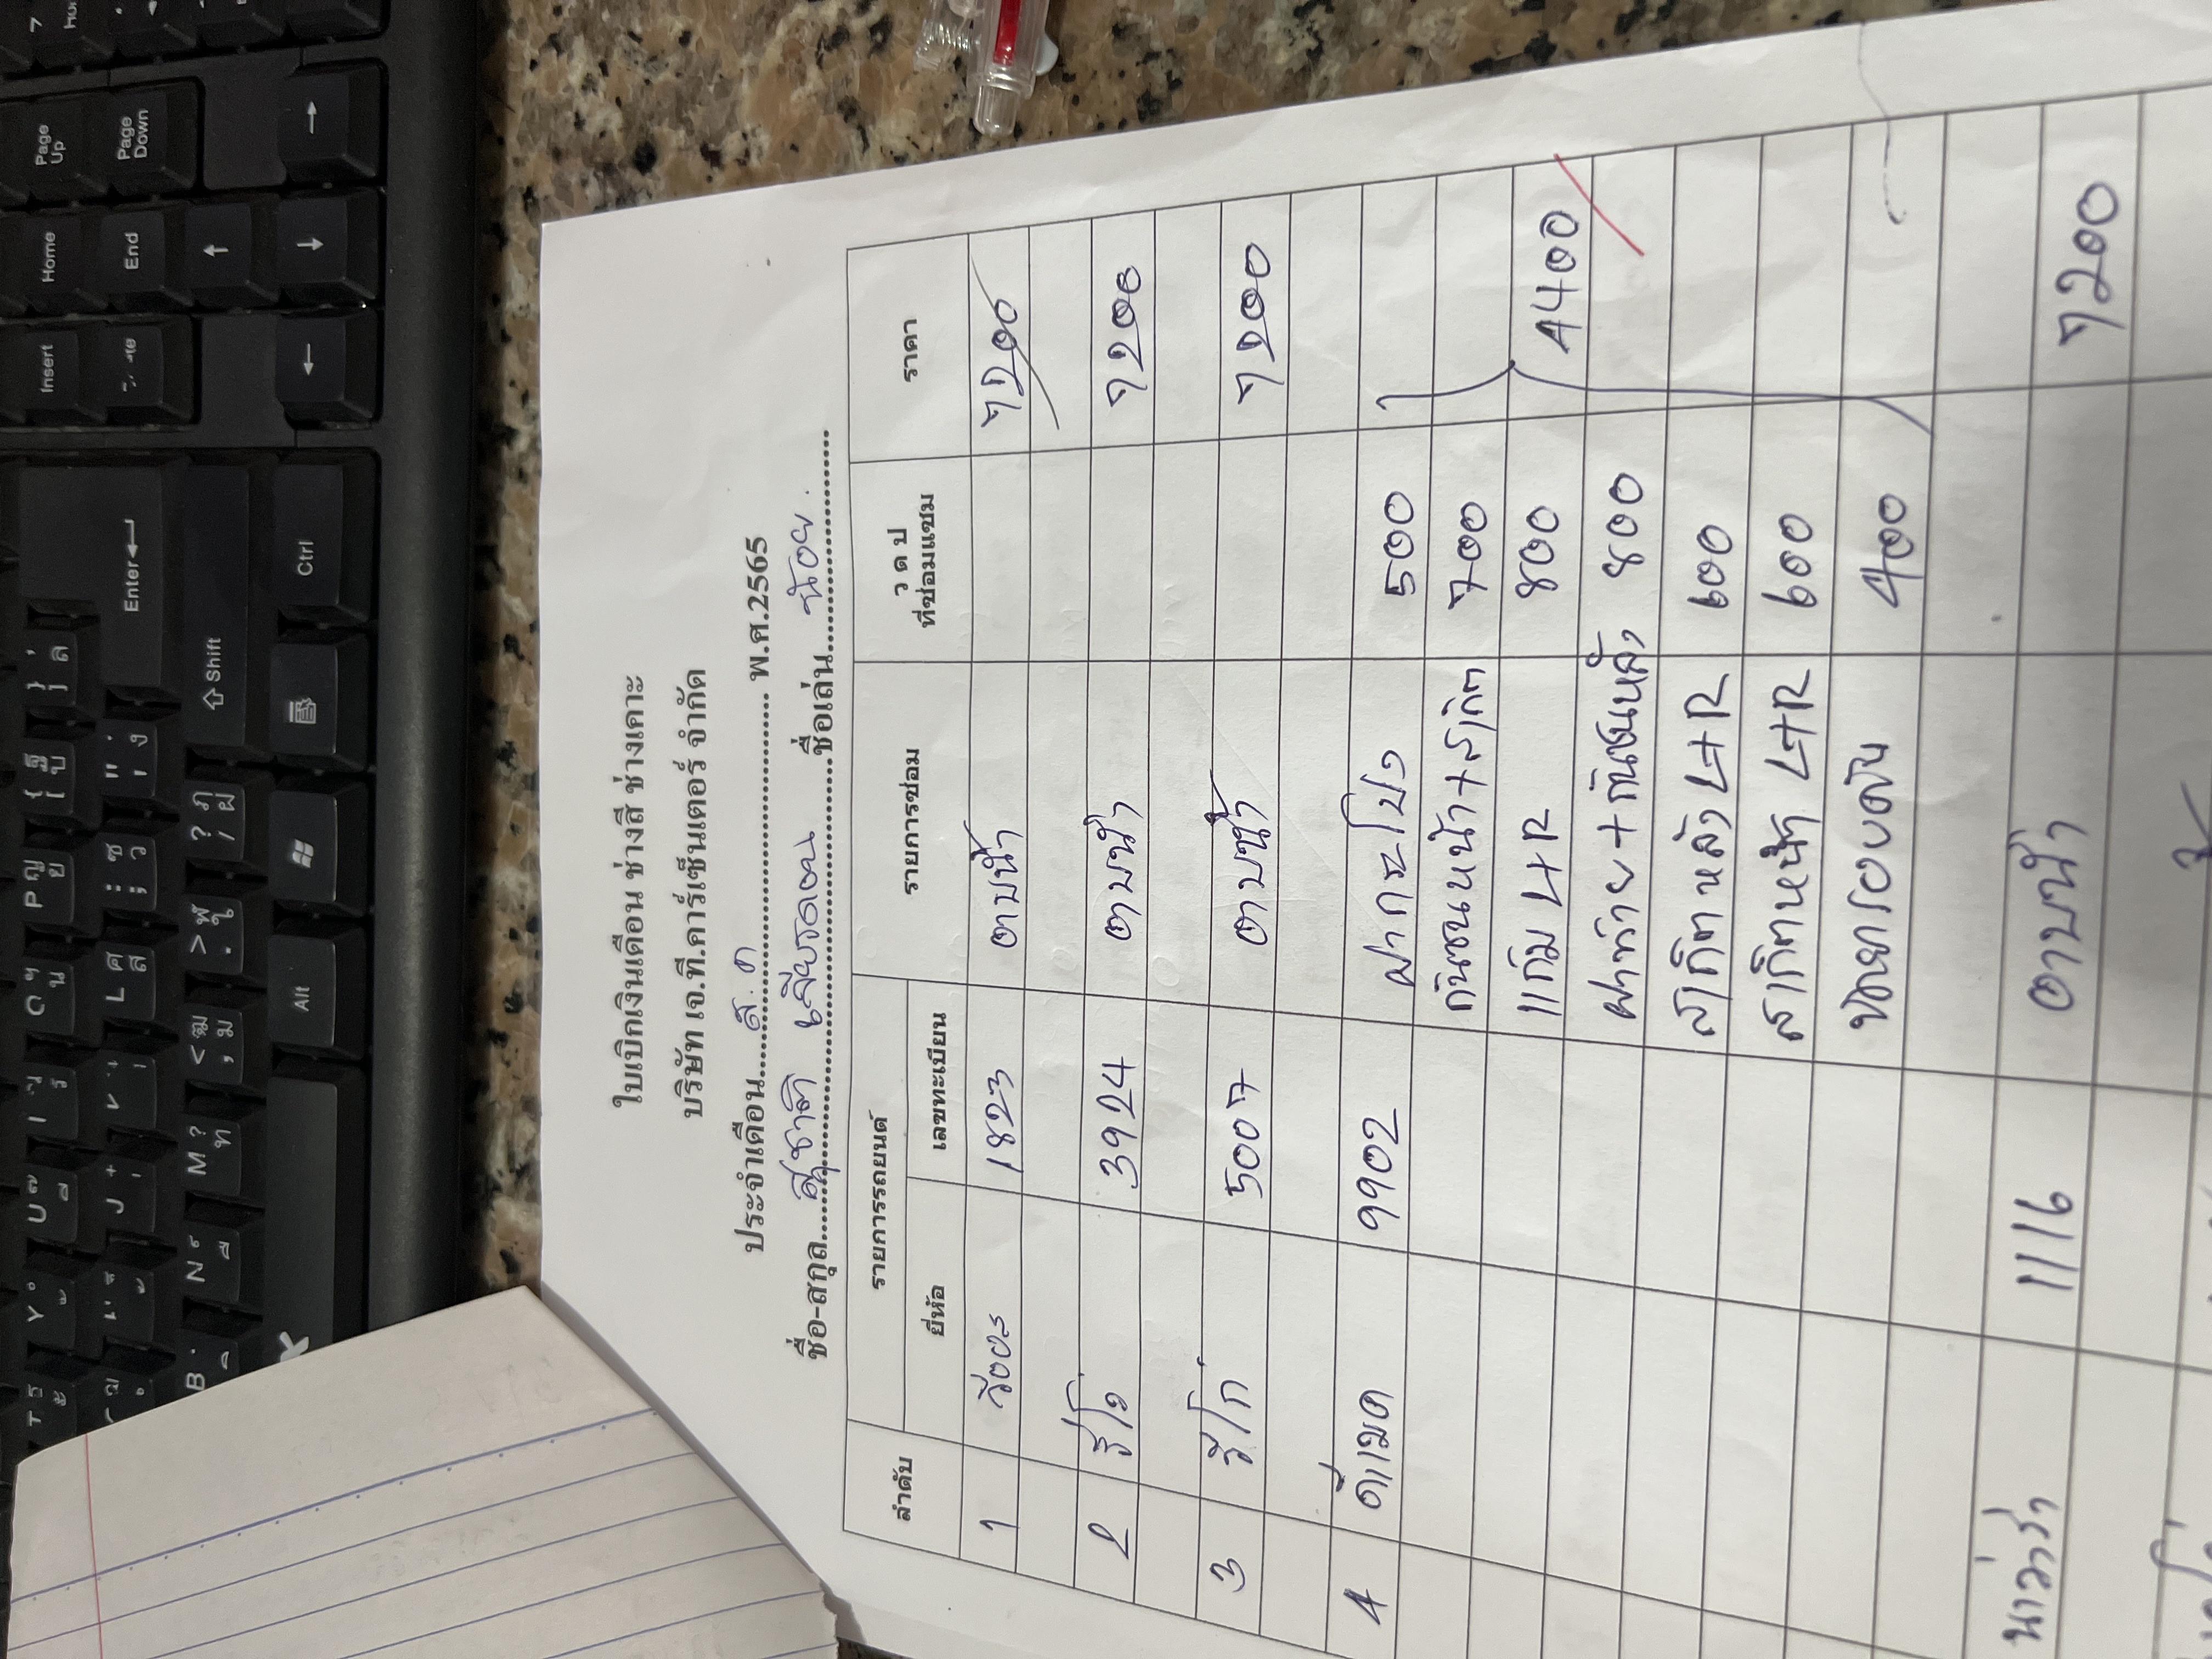 ใบเบิกเงินเดือน ช่างสี ช่างเคาะ
บริษัท เจ.ที.คาร์เซ็นเตอร์ จำกัด
ประจำเดือน ส.ค พ.ศ.2565
ชื่อ-สกุล สุชาติ ชื่อเล่น น้อย.
ลำดับ รายการรถยนต์ รายการซ่อม ว ด ป ที่ซ่อมแซม ราคา
ยี่ห้อ เลขทะเบียน
1 วีออส 1823 ดาบน้ำ 7200
2 รีโว่ 3924 ดาบน้ำ 7200
3 วีโก้ 5007 ดาบน้ำ 7200
4 ดีแมค 9902 ฝากระโปง 500
กันชนหน้า+สเกิต 700
แก้ม L+R 800 4400
ฝาท้าย+กันชนหลัง 800
สเกิตหลัง L+R 600
สเกิตหน้า L+R 600
400
นาวาร่า 1116 ดาบน้ำ 7200
Insert
Home
Page Up
End
Page Down
Enter
Shift
Ctrl
Alt